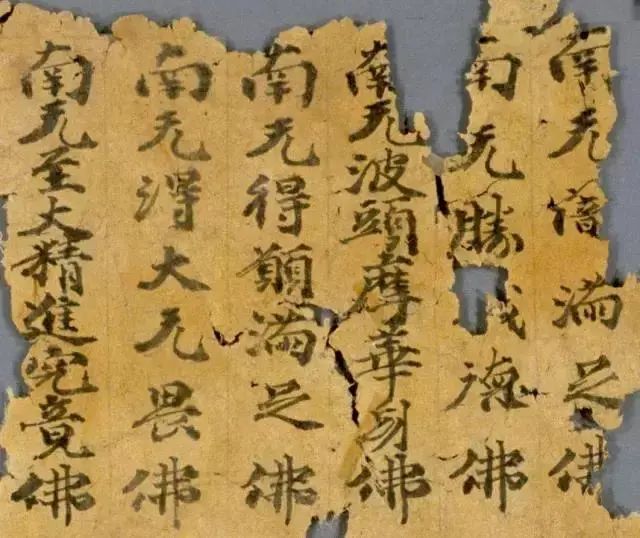 南无倍滿足佛
南无勝威德佛
南无波頭摩華身佛
南无得願滿足佛
南无得大无畏佛
南无至大精進究竟佛